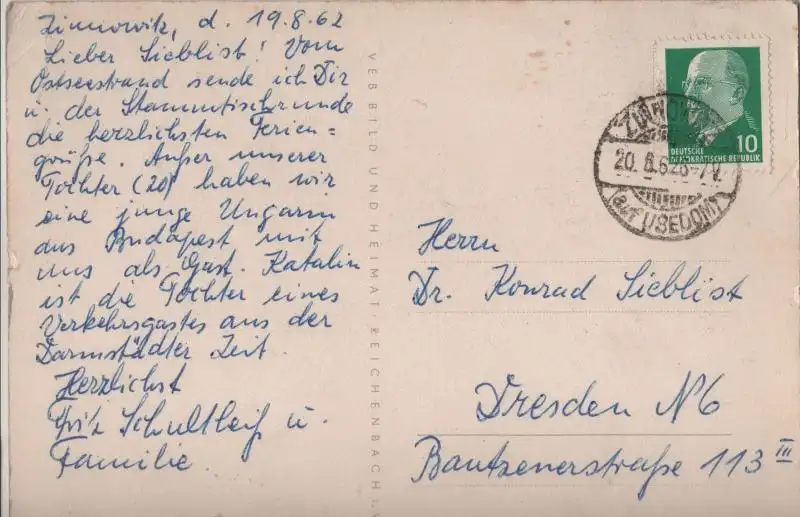 Zinnowitz, d. 19.8.62
Lieber Sieblist! Vom
Ostseestrand sende ich Dir
u. der Stammtischrunde
die herzlichsten Ferien=
grüße. Außer unserer
Tochter (20) haben wir
eine junge Ungarin
aus Budapest mit
uns als Gast. Katalin
ist die Tochter eines
Verkehrsgastes aus der
Darmstädter Zeit.
Herzlichst
Fritz Schultheiß u.
Familie.
VEB BILD UND HEIMAT · REICHENBACH i.
10
DEUTSCHE
DEMOKRATISCHE REPUBLIK
ZINNOWITZ
20. 8. 62
(auf USEDOM)
Herrn
Dr. Konrad Sieblist
Dresden N6
Bautzenerstraße 113 III